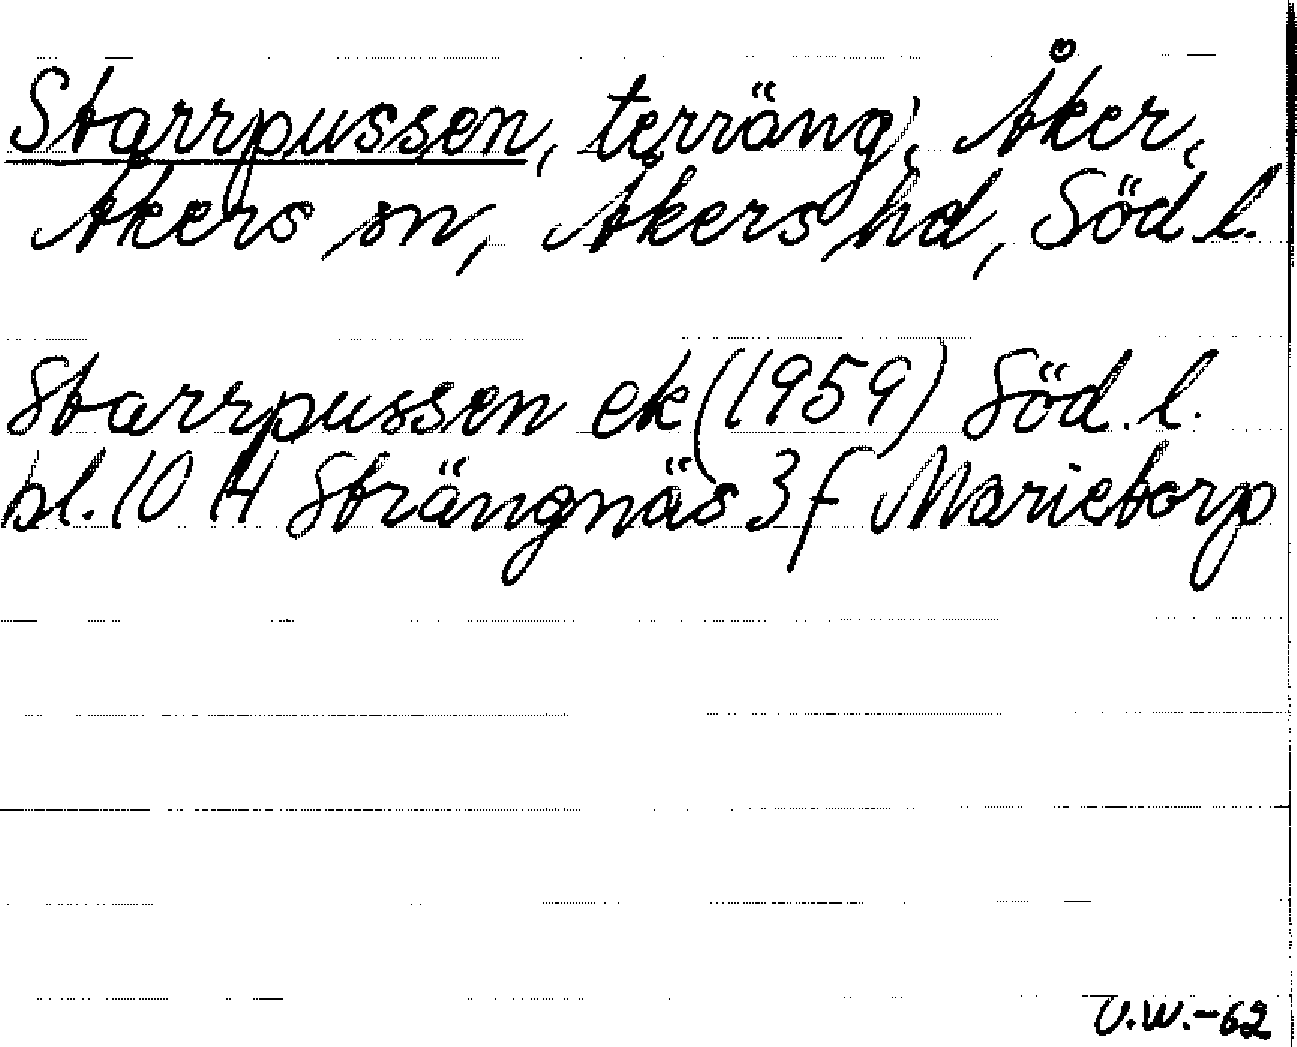 Starrpussen, terräng, Åker,
Åkers sn, Åkers hd, Söd. l.
Starrpussen ek (1959) Söd. l.
bl. 10 H Strängnäs 3 f Marietorp
U.W.-62